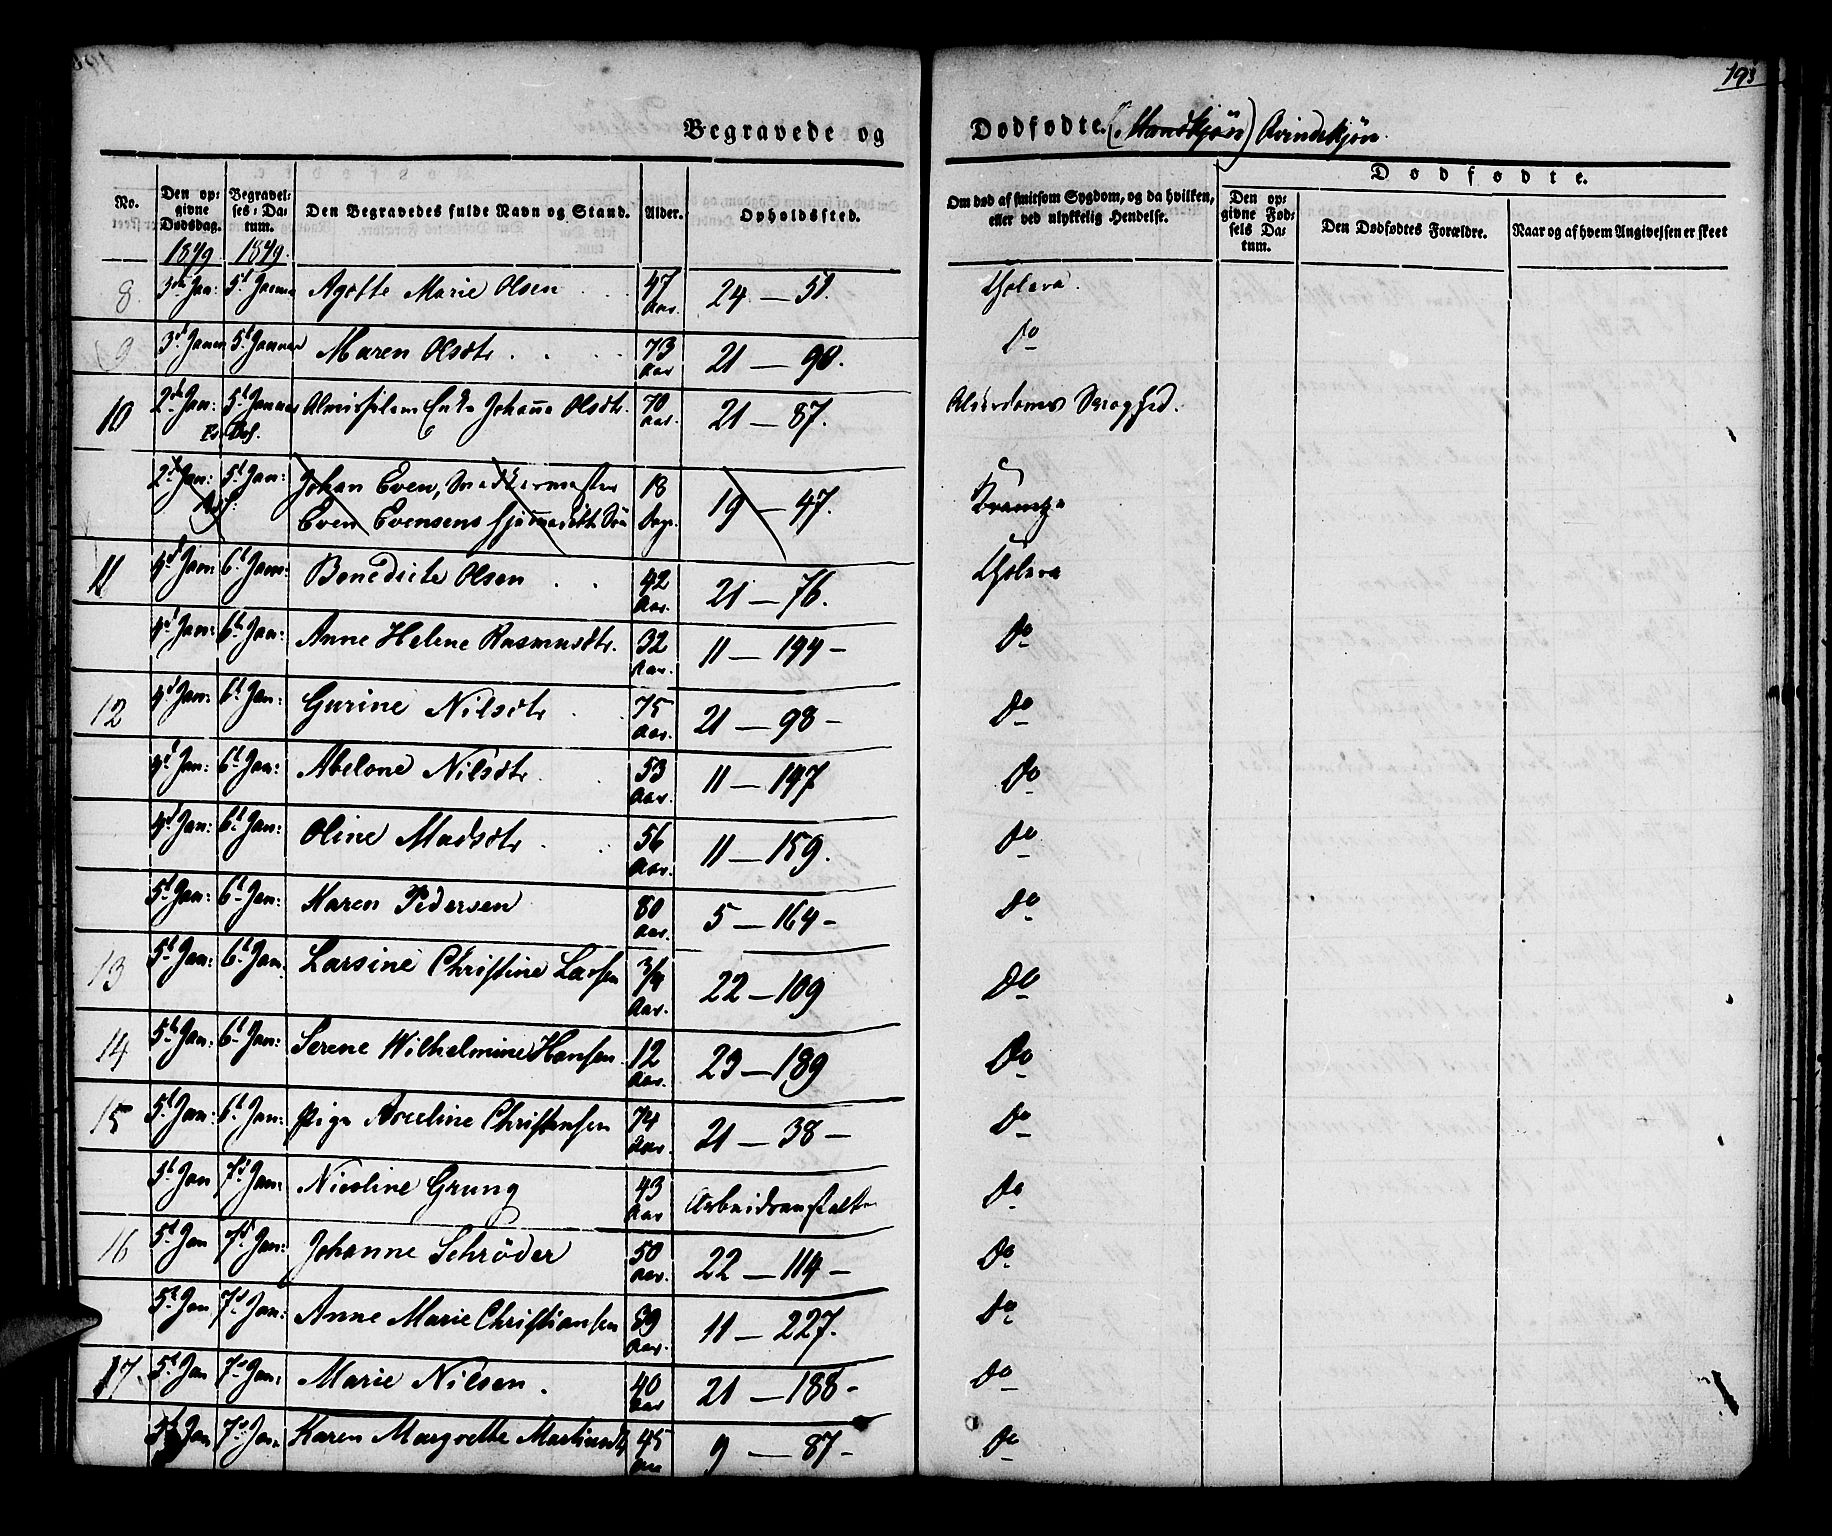 193
Begravede og Dødfødte. (Mandkjøn) Qvindekjøn.
No.
Den opgivne Dødsdag.
Begravelses-Datum.
Den Begravedes fulde Navn og Stand.
Alder.
Opholdssted.
Om død af smitsom Sygdom, og da hvilken, eller ved ulykkelig Hendelse.
Dødfødte.
Den opgivne Fødsels Datum.
Den Dødfødtes Forældre.
Naar og af hvem Angivelsen er skeet
1849 1849.
8. 3die Jan: 5t Januar Agothe Marie Olsen 47 Aar. 24 — 51. Cholera.
9 3d Januar 5t Januar Maren Olsdtr 73 Aar 21 — 90. Do
10 2den Jan: 5t Januar Almisselem Enke Johanne Olsdtr. 70 Aar. 21 — 87. Alderdoms Svaghed.
2d Jan: 5t Jan: Johan Even, Snedkermester
Even Evensens hjemmedøbte Søn 18 Dage. 19 — 47. Krampe
11 4d Jan: 6t Jan: Benedicte Olsen 42 Aar. 21 — 76. Cholera
4d Jan: 6t Jan: Anne Helene Rasmusdtr. 32 Aar. 11 — 199 — Do
12 4d Jan: 6t Jan: Gurine Nilsdtr 75 Aar. 21 — 98 — Do
4d Jan: 6t Jan: Abelone Nilsdtr. 53 Aar. 11 — 197 Do
4d Jan: 6t Jan: Oline Madsdtr 56 Aar. 11 — 159. Do
5t Jan: 6t Jan: Maren Pedersen 80 Aar. 5 — 164 — Do
13 5t Jan: 6t Jan. Larsine Christine Larsen 3/4 Aar. 22 — 109 Do
14 5t Jan: 6t Jan: Serene Wilhelmine Hansen 12 Aar. 23 — 189 Do
15 5t Jan: 6t Jan: Pige Aveline Christensen 74 Aar. 21 — 38 — Do
5t Jan 7d Jan: Nicoline Grung 43 Aar Arbeidsanstalten Do
16 5t Jan 7d Jan: Johanne Schrøder 50 Aar. 22 — 114 — Do
5t Jan 7d Jan: Anne Marie Christiansen 39 Aar. 11 — 227. Do
17 5t Jan 7d Jan: Marie Nilsen. 40 Aar 21 — 188 — Do
5t Jan 7d Jan Karen Margrethe Martinsdtr 45 Aar 9 — 87 — Do